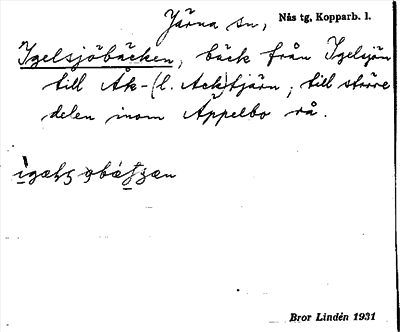 Järna sn, Nås tg, Kopparb. l.
Igelsjöbäcken, bäck från Igelsjön
till Åk-(l. Ack)tjärn; till större
delen inom Äppelbo rå.
Bror Lindén 1931